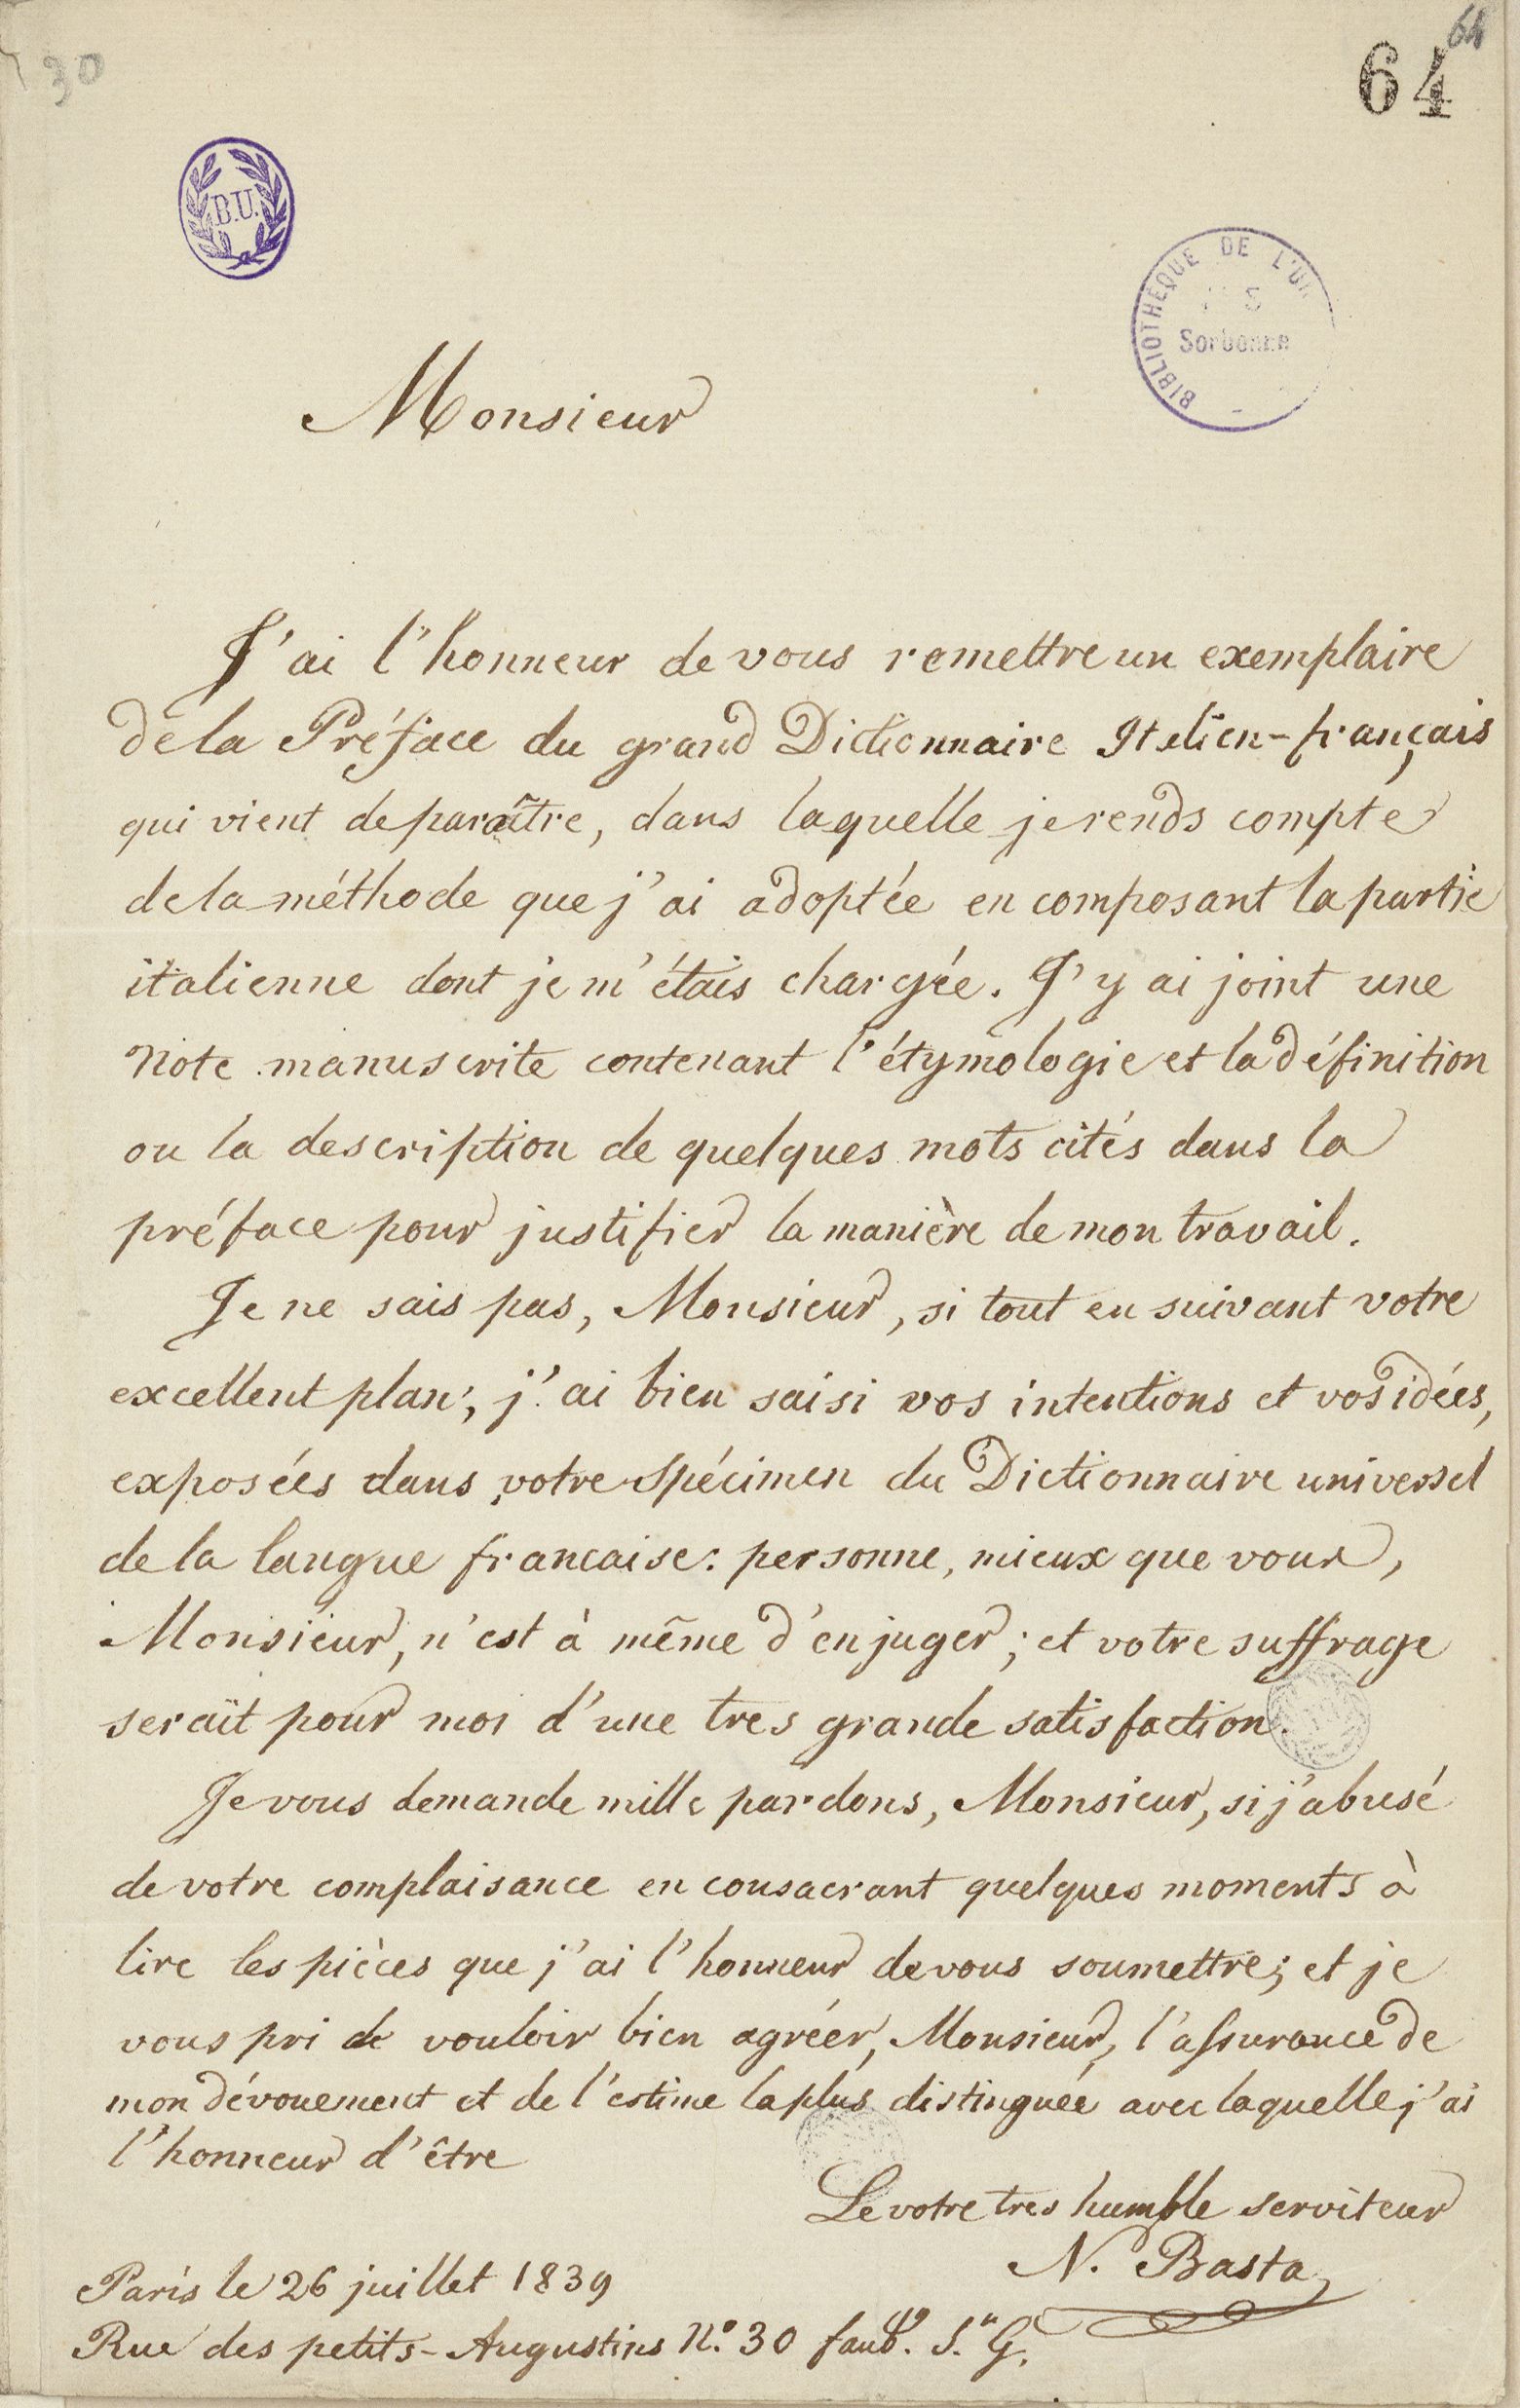 30
64
64
B.U.
BIBLIOTHÈQUE DE L'UN
Sorbonne
Monsieur
J'ai l'honneur de vous remettre un exemplaire
de la Préface du grand Dictionnaire Italien-français
qui vient de paraître, dans laquelle je rends compte
de la méthode que j'ai adoptée en composant la partie
italienne dont je m'étais chargée. J'y ai joint une
Note manuscrite contenant l'étymologie et la définition
ou la description de quelques mots cités dans la
préface pour justifier la manière de mon travail.
Je ne sais pas, Monsieur, si tout en suivant votre
excellent plan, j'ai bien saisi vos intentions et vos idées,
exposées dans votre Spécimen du Dictionnaire universel
de la langue francaise: personne, mieux que vous,
Monsieur, n'est à même d'en juger; et votre suffrage
serait pour moi d'une tres grande satisfaction.
Je vous demande mille pardons, Monsieur, si j'abusé
de votre complaisance en consacrant quelques moments à
lire les pièces que j'ai l'honneur de vous soumettre; et je
vous pri de vouloir bien agréer, Monsieur, l'assurance de
mon dévouement et de l'estime la plus distinguée avec laquelle j'ai
l'honneur d'être
Le votre tres humble serviteur
N. Basta
Paris le 26 juillet 1839
Rue des petits-Augustins N.° 30 faub.g S.t G.